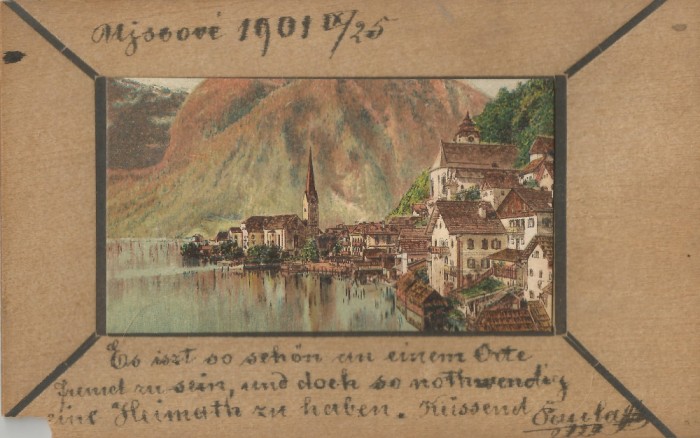 Ujsoové 1901 IX/25
Es iszt so sehön an einem Orte
fremd zu sein, und doch so nothwendig
eine Heimath zu haben. Küssend